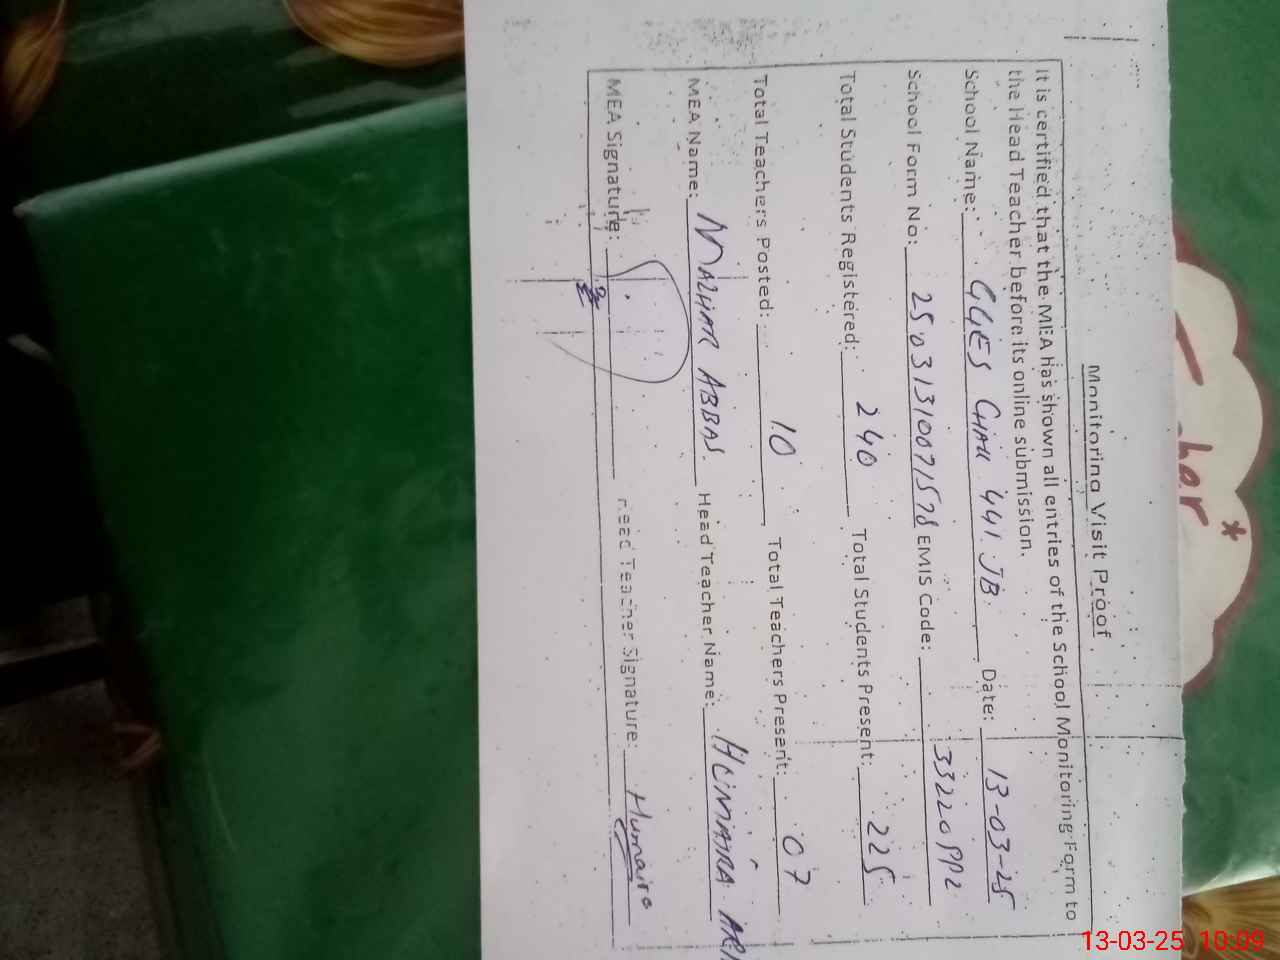 Monitoring Visit Proof
It is certified that the MEA has shown all entries of the School Monitoring Form to
the Head Teacher before its online submission.
School Name: GGES CHAK 441 JB Date: 13-03-25
School Form No: 25031310071578 EMIS Code:
Total Students Registered: 240 Total Students Present: 225
Total Teachers Posted: 10 Total Teachers Present: 07
MEA Name: MAZHAR ABBAS Head Teacher Name: HUMAIRA
MEA Signature: Head Teacher Signature: Humaira
13-03-25 10:09